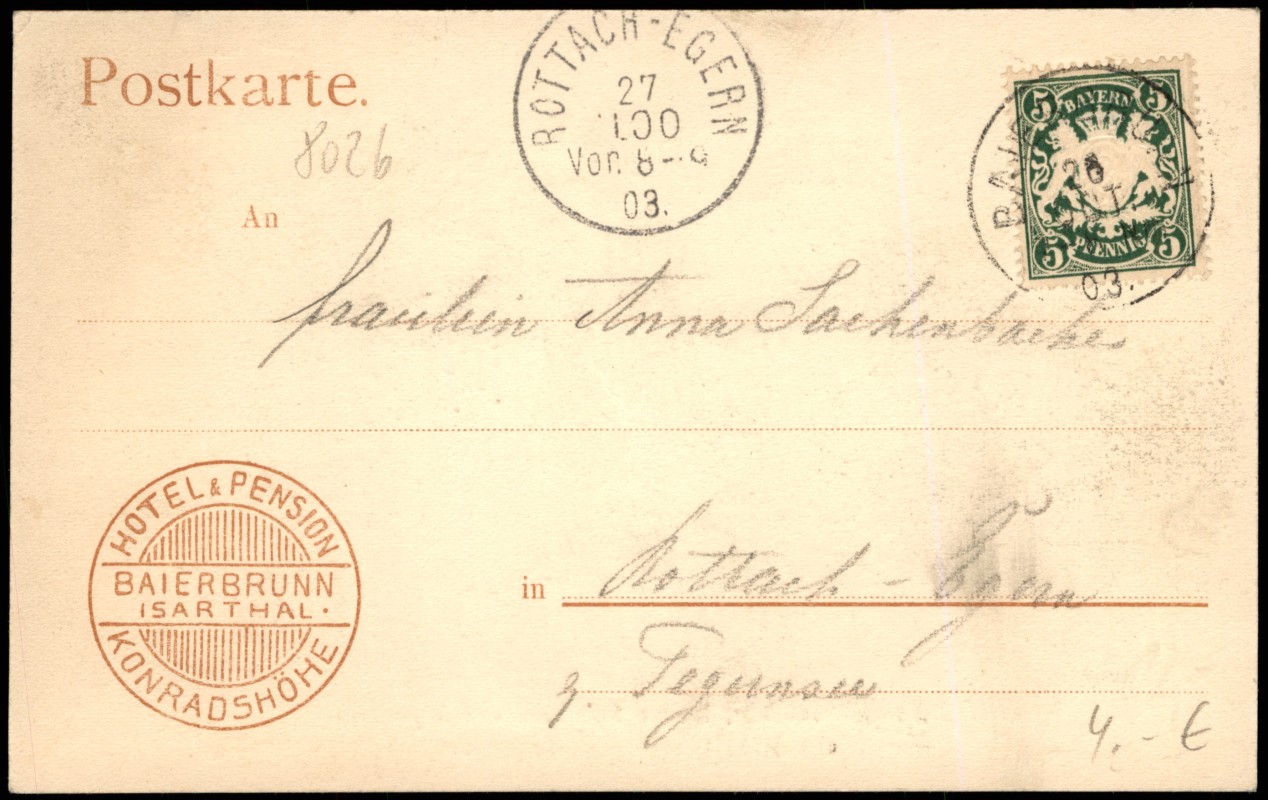 Postkarte.
8026
ROTTACH-EGERN
27
Vor. 8-9
03.
BAYERN
5 5
5 5
PFENNIG
BAI
26
03.
An
Fräulein Anna Sachenbacher
HOTEL & PENSION
BAIERBRUNN
ISARTHAL.
KONRADSHÖHE
in Rottach-Egern
z. Tegernsee
4.- €